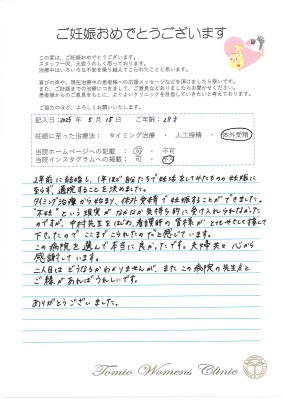 ご妊娠おめでとうございます
この度は、ご妊娠おめでとうございます。
スタッフ一同、大変うれしく思っております。
治療中はいろいろな不安を乗り越えてこられたことと思います。
喜びの声や、現在治療中の患者様への応援メッセージなどを頂けましたら幸いです。
また、ご妊娠までの治療につきまして、ご意見などありましたらお書きください。
患者様からのご意見をもとに、よりよいクリニックを目指していきたいと考えております。
ご協力のほど、よろしくお願いいたします。
記入日：2025年 5月 15日 ご年齢：28才
妊娠に至った治療法： タイミング治療 ・ 人工授精 ・ 体外受精
当院ホームページへの記載 ： 可 ・ 不可
当院インスタグラムへの掲載 ： 可 ・ 不可
2年前に結婚し、1年ほど自己流で妊活をしてみたものの妊娠に
至らず、通院することを決めました。
タイミング治療から始まり、体外受精で妊娠することができました。
"不妊"という現実がなかなか気持ち的に受け入れられなかった
のですが、中村先生をはじめ、看護師の皆様がとてもやさしく接して
下さったので ここまでこられたのだと感じています。
この病院を選んで本当に良かったです。夫婦共々心から
感謝しています。
二人目は どうなるかわかりませんが、また この病院の先生方と
ご縁があればうれしいです。
ありがとうございました。
Tomio Womens Clinic